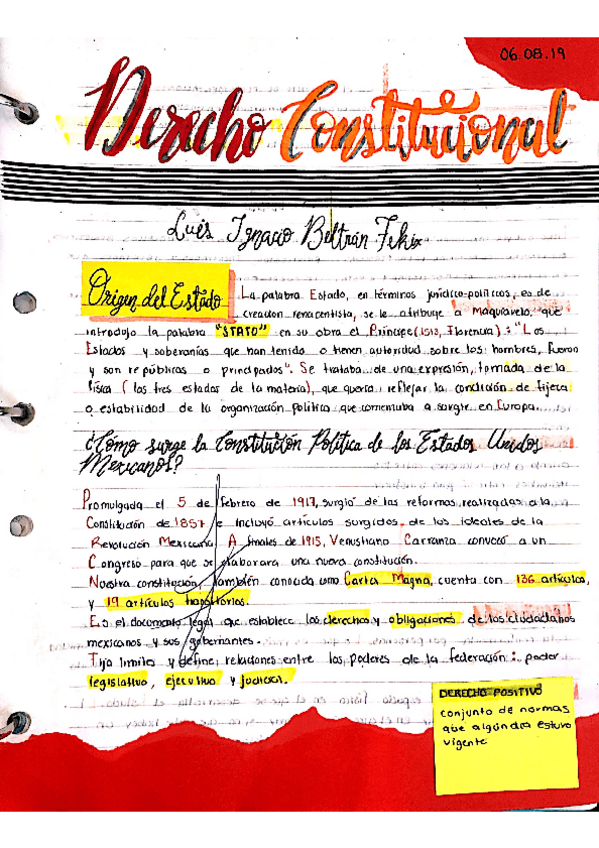 06.08.19
Derecho Constitucional
Luis Ignacio Beltrán Felix
Origen del Estado
La palabra Estado, en términos jurídico-políticos, es de
creación renacentista, se le atribuye a Maquiavelo, que
introdujo la palabra "STATO" en su obra el Príncipe (1513, Florencia): "Los
Estados y soberanías que han tenido o tienen autoridad sobre los hombres, fueron
y son repúblicas o principados". Se trataba de una expresión, tomada de la
física (los tres estados de la materia), que quería reflejar la condición de fijeza
o estabilidad de la organización política que comenzaba a surgir en Europa.
¿Cómo surge la Constitución Política de los Estados Unidos
Mexicanos?
Promulgada el 5 de febrero de 1917, surgió de las reformas realizadas a la
Constitución de 1857 e incluyó artículos surgidos de los ideales de la
Revolución Mexicana. A finales de 1915, Venustiano Carranza convocó a un
Congreso para que se elaborara una nueva constitución.
Nuestra constitución, también conocida como Carta Magna, cuenta con 136 artículos,
y 19 artículos transitorios.
Es el documento legal que establece los derechos y obligaciones de los ciudadanos
mexicanos y sus gobernantes.
Fija límites y define relaciones entre los poderes de la federación: poder
legislativo, ejecutivo y judicial.
DERECHO POSITIVO
conjunto de normas
que algún día estuvo
vigente